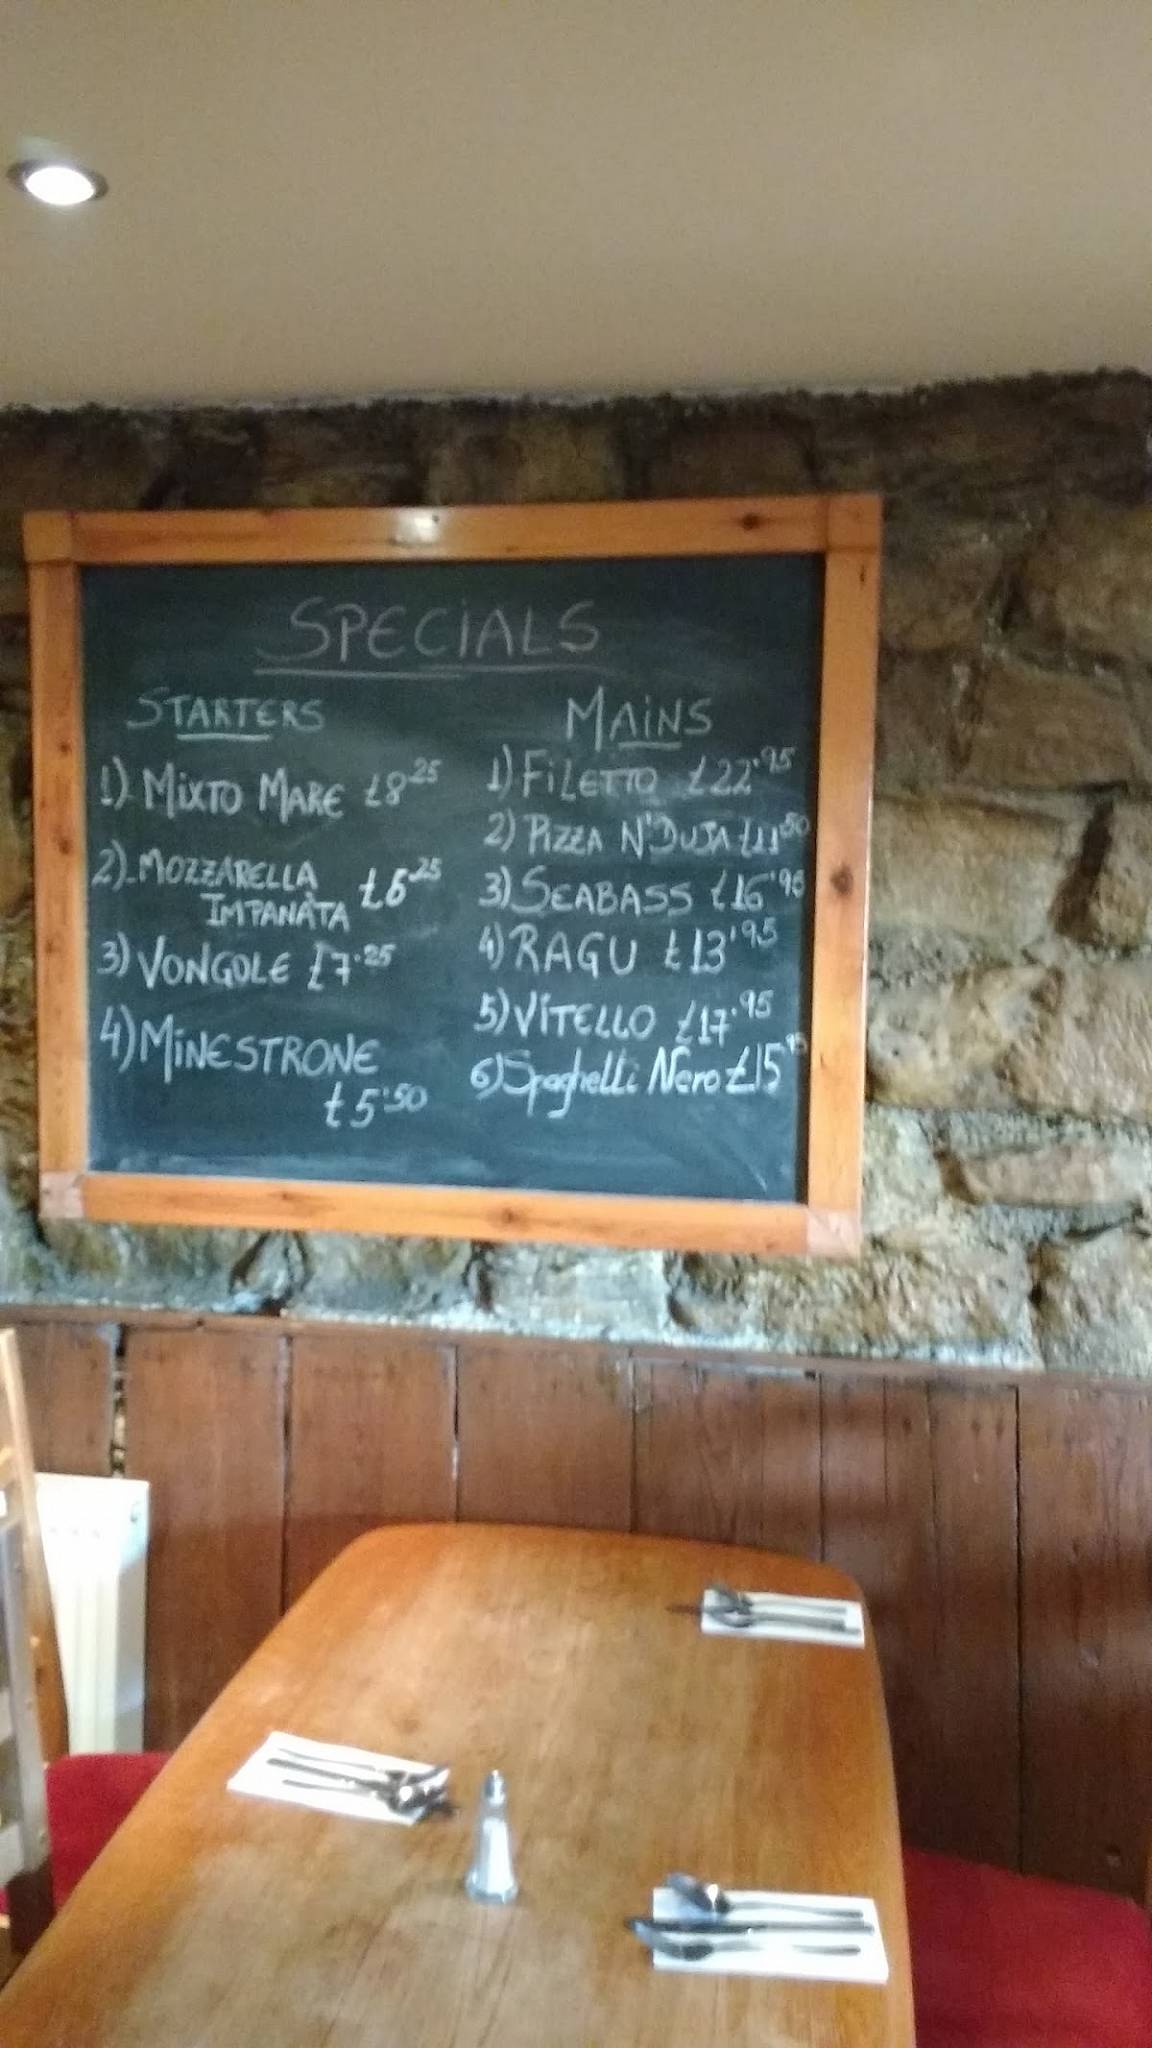 SPECiALS
STARTERS
1) MIXTO MARE £8.25
2) MOZZARELLA
IMPANATA £6.25
3) VONGOLE £7.25
4) MiNESTRONE
£5.50
MAiNS
1) FiLETTO £22.95
2) PIZZA N'DUJA £11.50
3) SEABASS £16.95
4) RAGU £13.95
5) VITELLO £17.95
6) Spaghetti Nero £15.95